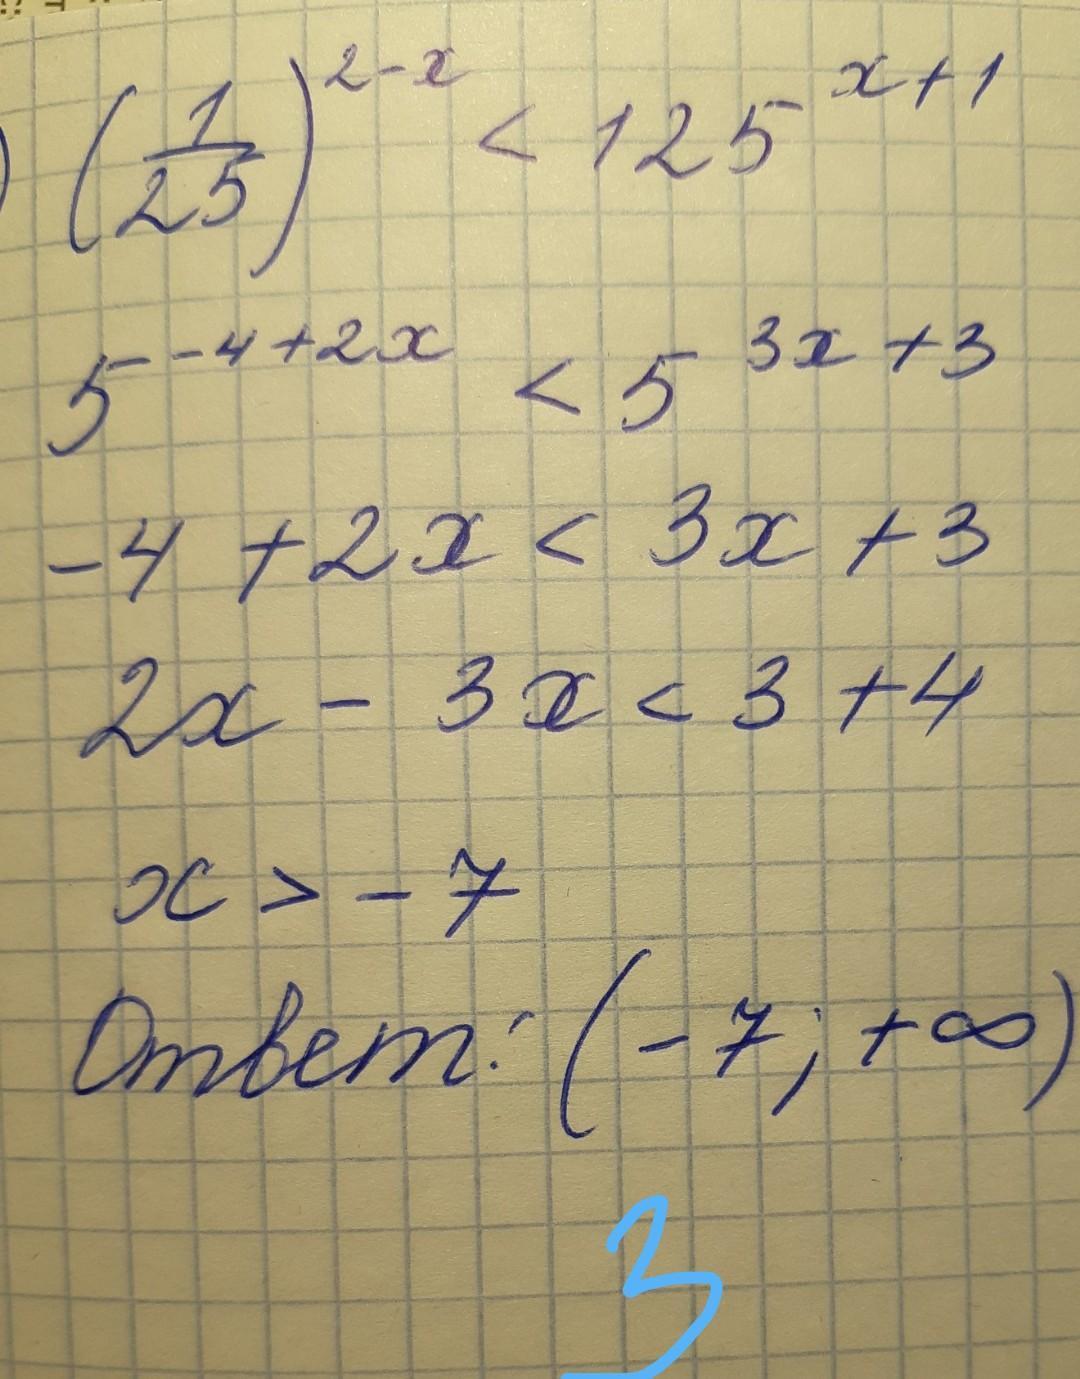 ) (1/25)^{2-x} < 125^{x+1}
5^{-4+2x} < 5^{3x+3}
-4 +2x < 3x +3
2x - 3x < 3 +4
x > -7
Ответ: (-7; +∞)
3